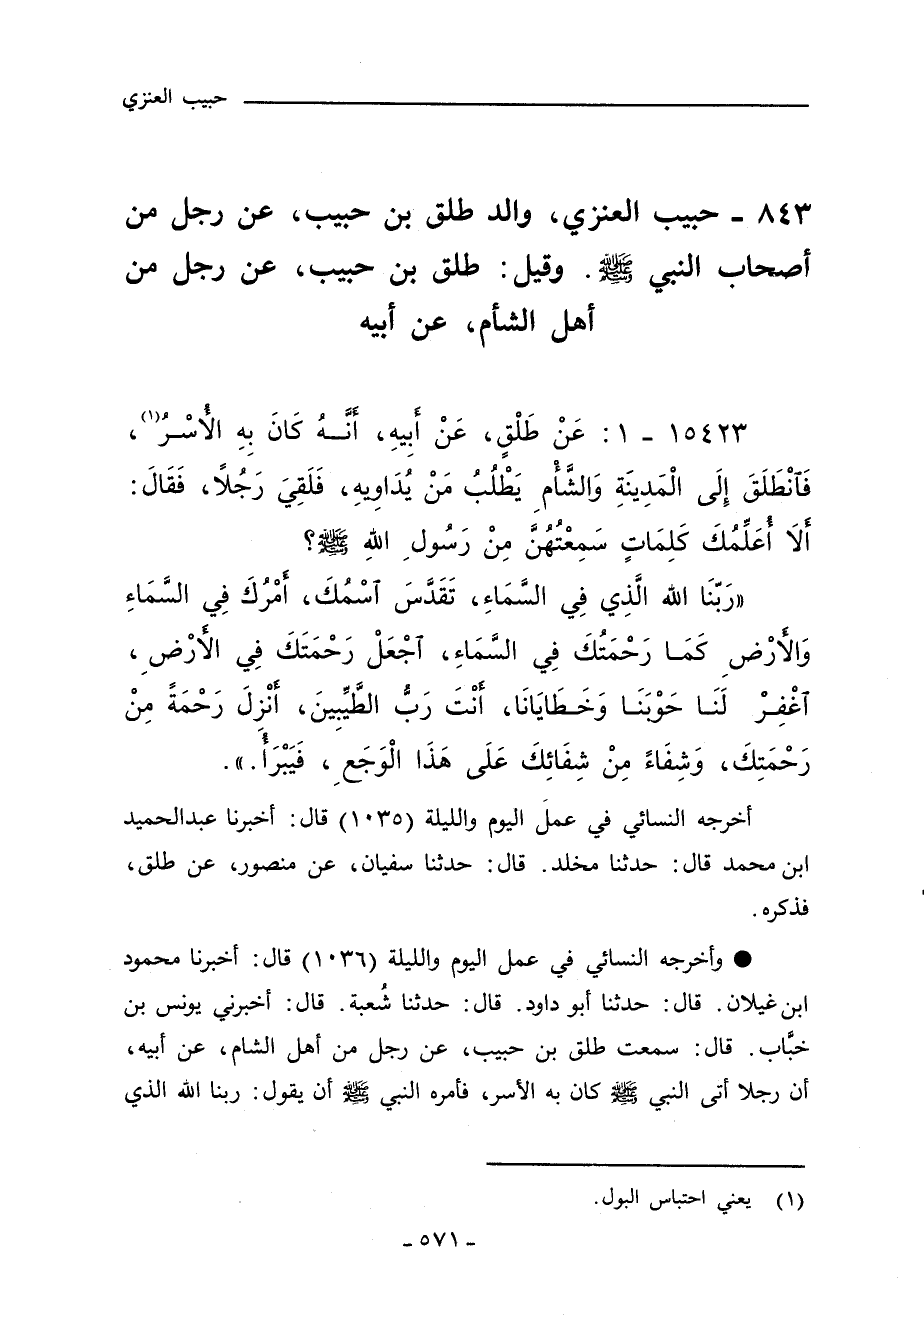 حبيب العنزي
٨٤٣ ـ حبيب العنزي، والد طلق بن حبيب، عن رجل من
أصحاب النبي ﷺ. وقيل: طلق بن حبيب، عن رجل من
أهل الشأم، عن أبيه
١٥٤٢٣ ـ ١: عَنْ طَلْقٍ، عَنْ أَبِيهِ، أَنَّـهُ كَانَ بِهِ الْأُسْـرُ(١)،
فَٱنْطَلَقَ إِلَى الْمَدِينَةِ وَالشَّأْمِ يَطْلُبُ مَنْ يُدَاوِيهِ، فَلَقِيَ رَجُلاً، فَقَالَ:
أَلَا أُعَلِّمُكَ كَلِمَاتٍ سَمِعْتُهُنَّ مِنْ رَسُولِ اللهِ ﷺ؟
«رَبَّنَا الله الَّذِي فِي السَّمَاءِ، تَقَدَّسَ ٱسْمُكَ، أَمْرُكَ فِي السَّمَاءِ
وَالأَرْضِ كَمَـا رَحْمَتُكَ فِي السَّمَاءِ، ٱجْعَلْ رَحْمَتَكَ فِي الأَرْضِ،
ٱغْفِـرْ لَنَـا حَوْبَنَـا وَخَـطَايَانَا، أَنْتَ رَبُّ الطَّيِّبِينَ، أَنْزِلَ رَحْمَةً مِنْ
رَحْمَتِكَ، وَشِفَاءً مِنْ شِفَائِكَ عَلَى هَذَا الْوَجَعِ، فَيَبْرَأُ.».
أخرجه النسائي في عمل اليوم والليلة (١٠٣٥) قال: أخبرنا عبدالحميد
ابن محمد قال: حدثنا مخلد. قال: حدثنا سفيان، عن منصور، عن طلق،
فذكره.
● وأخرجه النسائي في عمل اليوم والليلة (١٠٣٦) قال: أخبرنا محمود
ابن غيلان. قال: حدثنا أبو داود. قال: حدثنا شُعبة. قال: أخبرني يونس بن
خبَّاب. قال: سمعت طلق بن حبيب، عن رجل من أهل الشام، عن أبيه،
أن رجلا أتى النبي ﷺ كان به الأسر، فأمره النبي ﷺ أن يقول: ربنا الله الذي
(١) يعني احتباس البول.
ـ ٥٧١ ـ